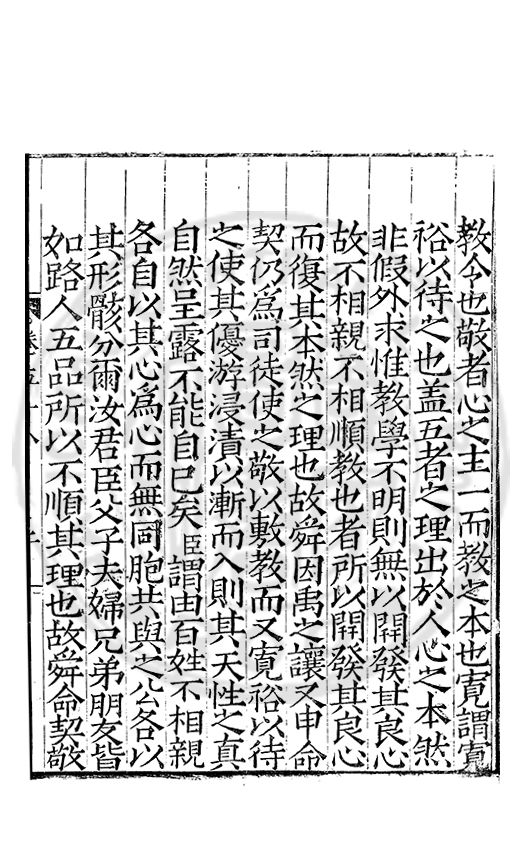 教令也敬者心之主一而教之本也寬謂寬
裕以待之也盖五者之理出於人心之本然
非假外求惟教學不明則無以開發其良心
故不相親不相順教也者所以開發其良心
而復其本然之理也故舜因禹之讓又申命
契仍為司徒使之敬以敷教而又寬裕以待
之使其優游浸漬以漸而入則其天性之真
自然呈露不能自已矣臣謂由百姓不相親
各自以其心為心而無同胞共與之公各以
其形骸分爾汝君臣父子夫婦兄弟朋友皆
如路人五品所以不順其理也故舜命契敬